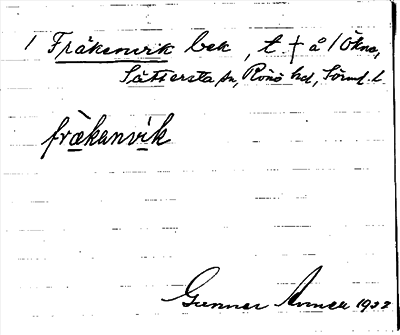 1 Fräkenvik bek, t. † å / Ökna,
Sättersta sn, Rönö hd, Sörml. l.
fràkanvik
Gunnar Anner 1932